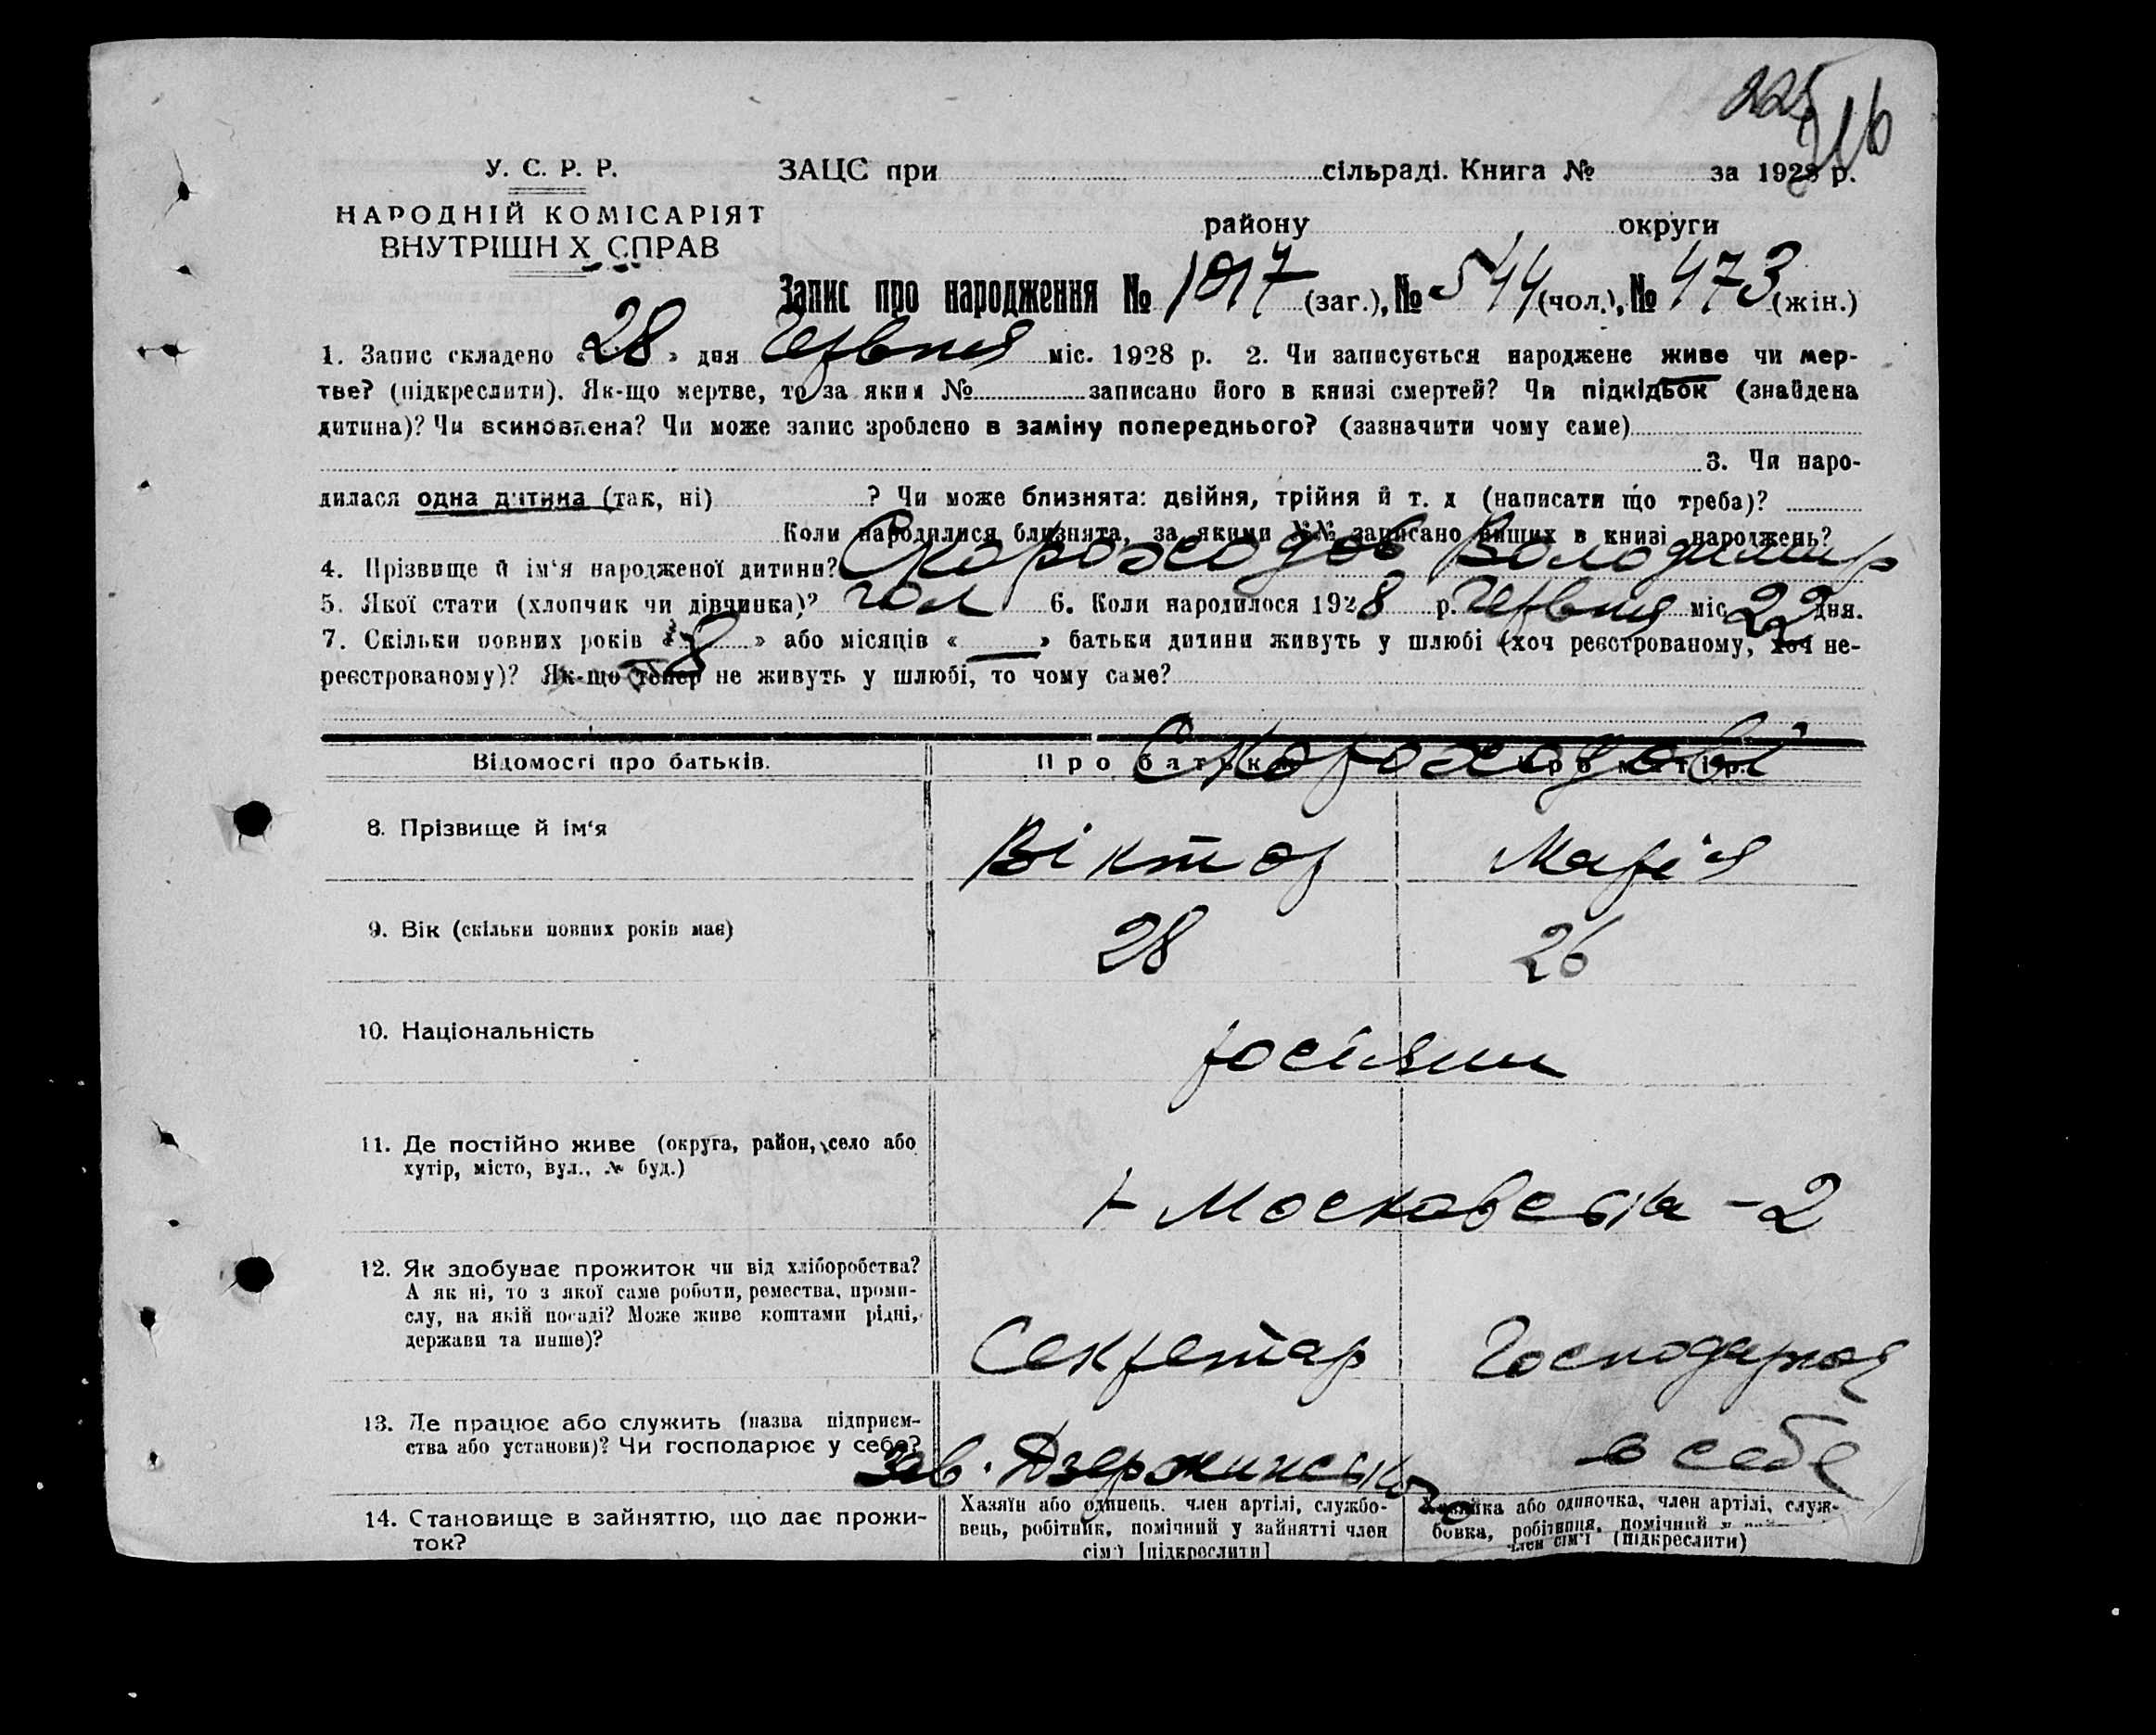 225
216
У. С. Р. Р.
НАРОДНІЙ КОМІСАРІЯТ
ВНУТРІШН Х СПРАВ
ЗАЦС при сільраді. Книга № за 1928 р.
району округи
Запис про народження № 1017 (заг.), № 544 (чол.), № 473 (жін.)
1. Запис складено «28» дня Червня міс. 1928 р. 2. Чи записується народжене живе чи мер-
тве? (підкреслити). Як-що мертве, то за яким № записано його в книзі смертей? Чи підкідьок (знайдена
дитина)? Чи всиновлена? Чи може запис зроблено в заміну попереднього? (зазначити чому саме)
3. Чи наро-
дилася одна дитина (так, ні) ? Чи може близнята: двійня, трійня й т. д (написати що треба)?
Коли народилися близнята, за якими №№ записано инших в книзі народжень?
4. Прізвище й ім'я народженої дитини? Скороходов Володимир
5. Якої стати (хлопчик чи дівчинка)? чол 6. Коли народилося 1928 р. Червня міс 22 дня.
7. Скільки повних років «8» або місяців «—» батьки дитини живуть у шлюбі (хоч реєстрованому, хоч не-
реєстрованому)? Як-що тепер не живуть у шлюбі, то чому саме?
Відомості про батьків. Про батька Про матір.
Скороходові
8. Прізвище й ім'я Віктор Марія
9. Вік (скільки повних років має) 28 26
10. Національність росіяни
11. Де постійно живе (округа, район, село або
хутір, місто, вул., № буд.)
Московська - 2
12. Як здобуває прожиток чи від хліборобства?
А як ні, то з якої саме роботи, ремества, проми-
слу, на якій посаді? Може живе коштами рідні,
держави та инше)?
Секретар Господарює
13. Де працює або служить (назва підприєм-
ства або установи)? Чи господарює у себе?
Зав. Дзержинського в себе
14. Становище в зайняттю, що дає прожи-
ток?
Хазяїн або одинець, член артілі, службо-
вець, робітник, помічний у зайнятті член
сім'ї [підкреслити]
Хазяйка або одиночка, член артілі, служ-
бовка, робітниця, помічний у
член сім'ї (підкреслити)